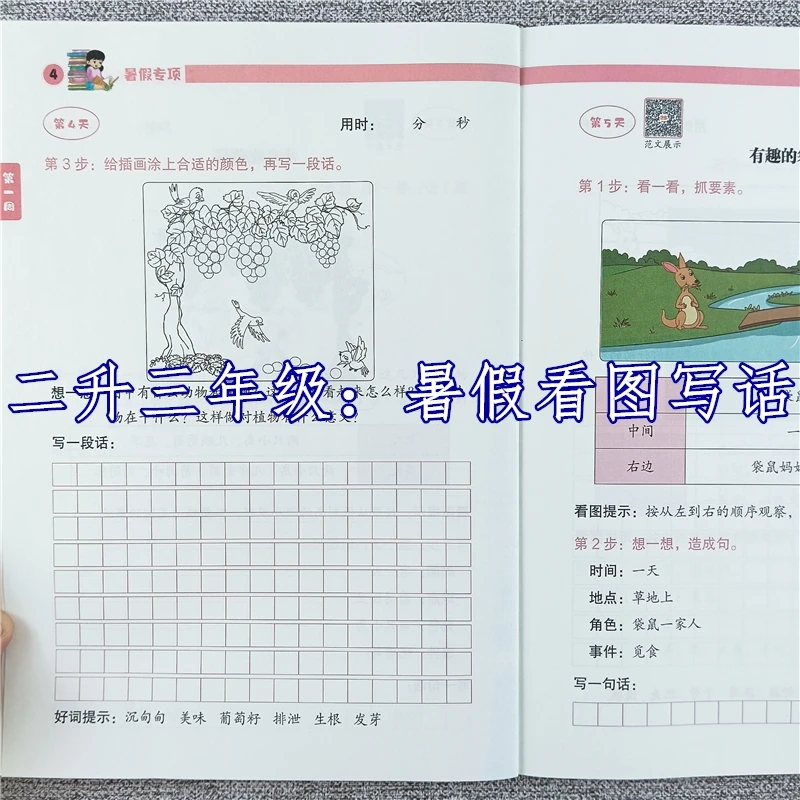 4
暑假专项
第4天
用时： 分 秒
第一周
第3步：给插画涂上合适的颜色，再写一段话。
写一段话：
好词提示：沉甸甸 美味 葡萄籽 排泄 生根 发芽
第5天
范文展示
有趣的
第1步：看一看，抓要素。
中间 一
右边 袋鼠妈妈
看图提示：按从左到右的顺序观察，
第2步：想一想，造成句。
时间：一天
地点：草地上
角色：袋鼠一家人
事件：觅食
写一句话：
二升三年级：暑假看图写话